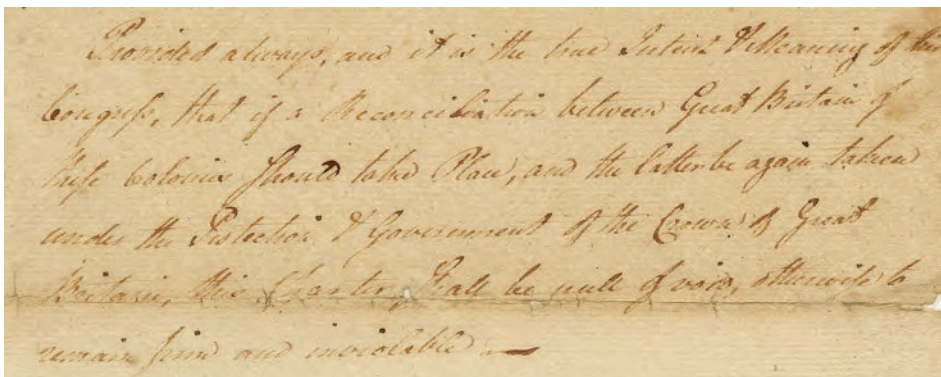 Provided always, and it is the true Intent & Meaning of this
Congress, that if a Reconciliation between Great Britain &
these Colonies should take Place, and the latter be again taken
under the Protection & Government of the Crown of Great
Britain, this Charter shall be null & void, otherwise to
remain firm and inviolable —